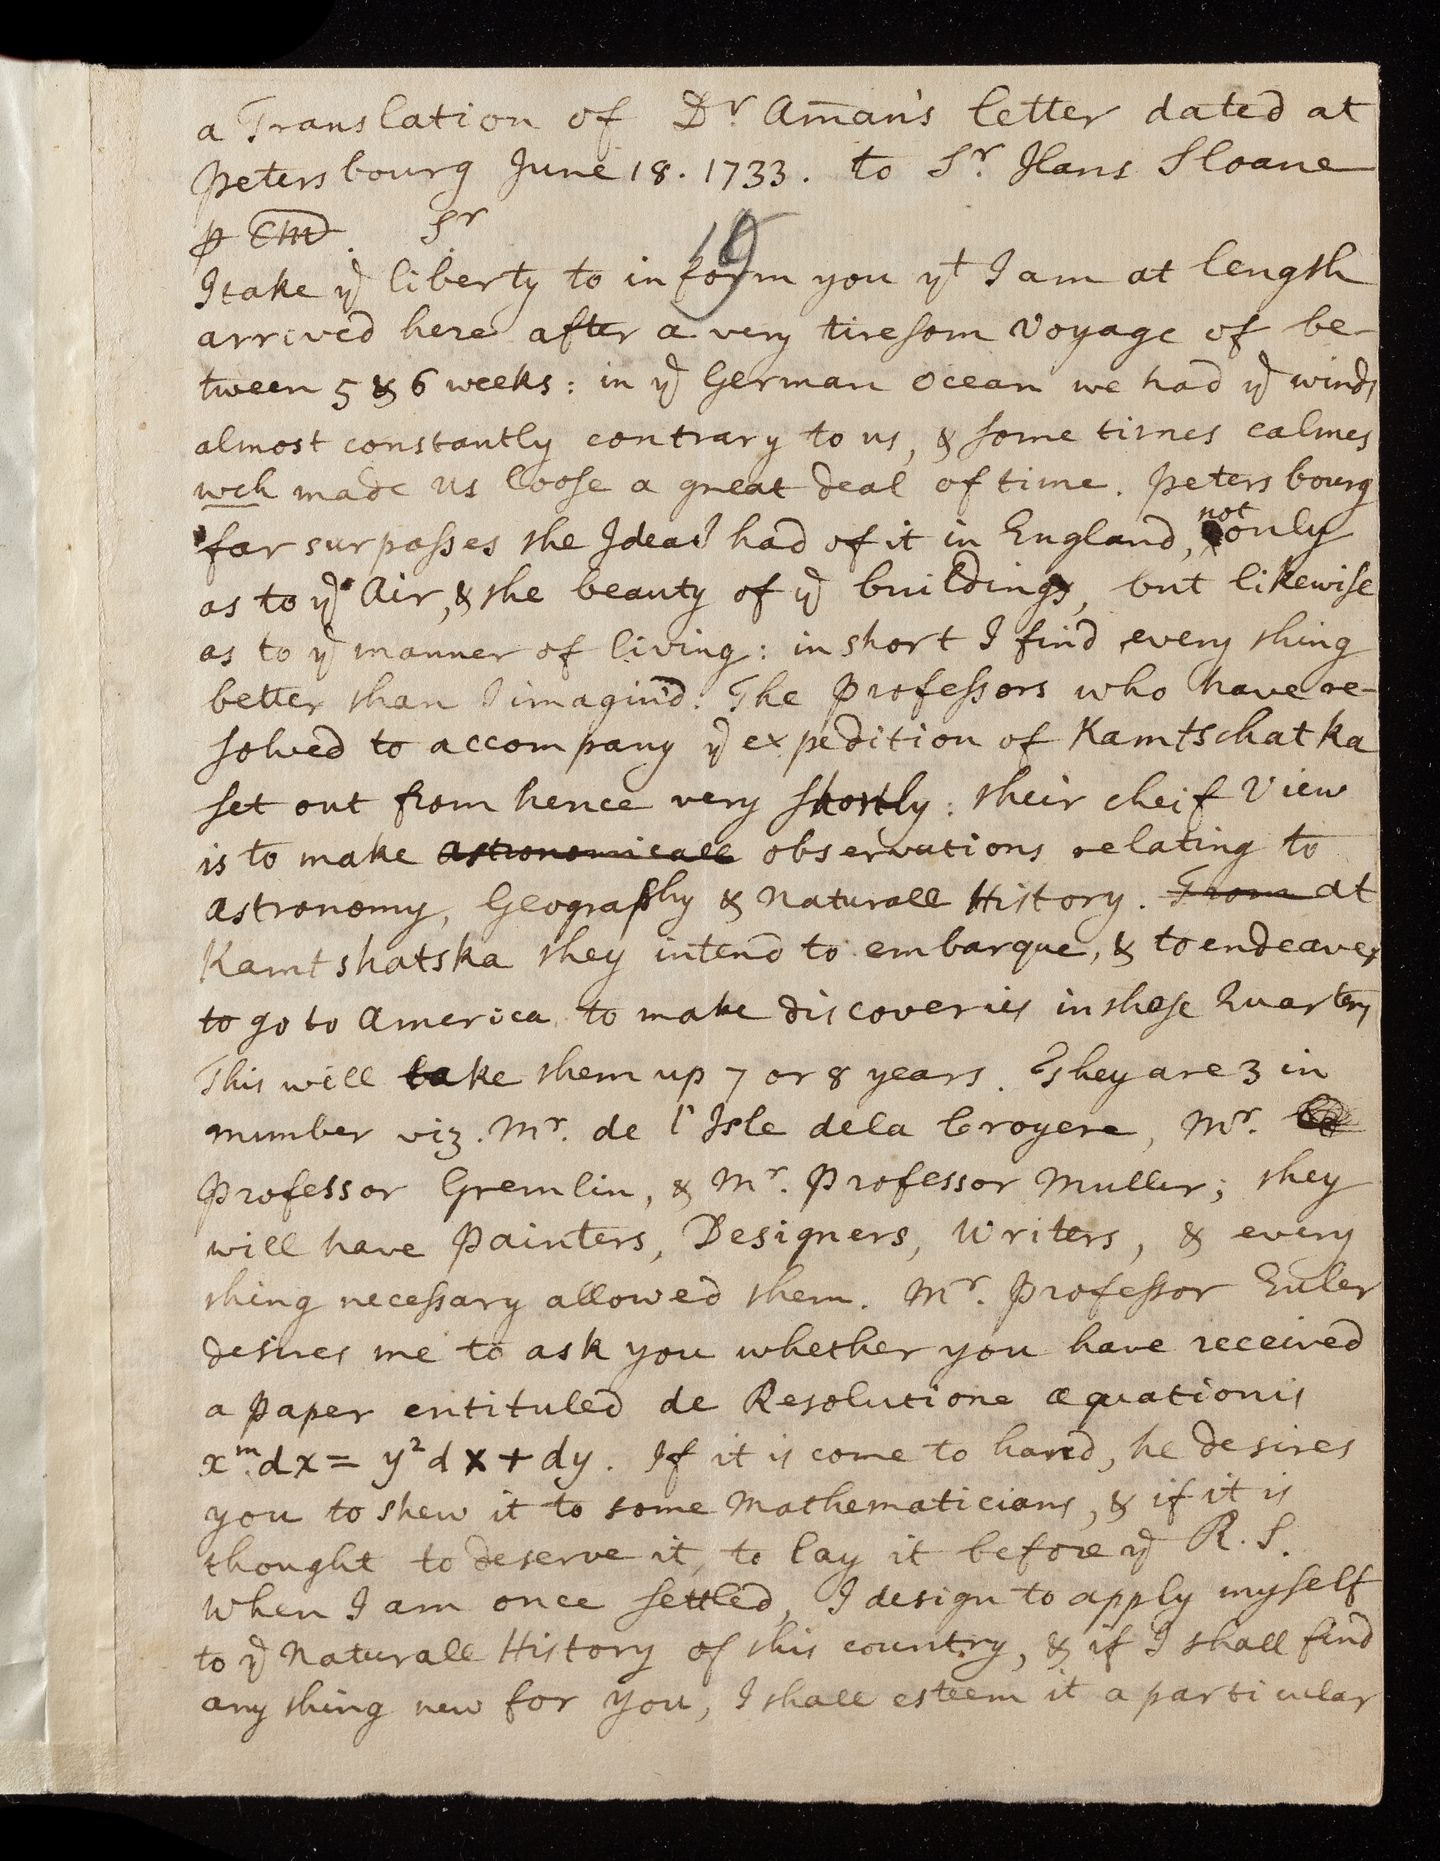 a Translation of Dr. Am̄an's letter dated at
Petersbourg June 18. 1733. to Sr Hans Sloane
Sr
19
I take ye liberty to inform you yt I am at length
arrived here after a very tiresom voyage of be-
tween 5 & 6 weeks: in ye German Ocean we had ye winds
almost constantly contrary to us, & some times calmes
wch made us loose a great deal of time. Petersbourg
far surpasses the Idea I had of it in England, not only
as to ye Air, & the beauty of ye buildings, but likewise
as to ye manner of living: in short I find every thing
better than I imagin'd. The Professors who have re-
solved to accompany ye expedition of Kamtschatka
set out from hence very shortly: their cheif View
is to make astronomicall observations relating to
astronomy, Geography & Naturall History. From at
Kamtshatska they intend to embarque, & to endeaver
to go to America to make discoveries in those Quarters
This will take them up 7 or 8 years. They are 3 in
number viz. Mr. de l'Isle dela Croyere, Mr.
Professor Gremlin, & Mr. Professor Muller; they
will have Painters, Designers, Writers, & every
thing necessary allowed them. Mr. Professor Euler
desires me to ask you whether you have received
a paper entituled de Resolutione æquationis
xᵐdx = y²dx + dy. If it is come to hand, he desires
you to shew it to some Mathematicians, & if it is
thought to deserve it, to lay it before ye R. S.
When I am once settled, I design to apply myself
to ye Naturall History of this country, & if I shall find
any thing new for you, I shall esteem it a particular